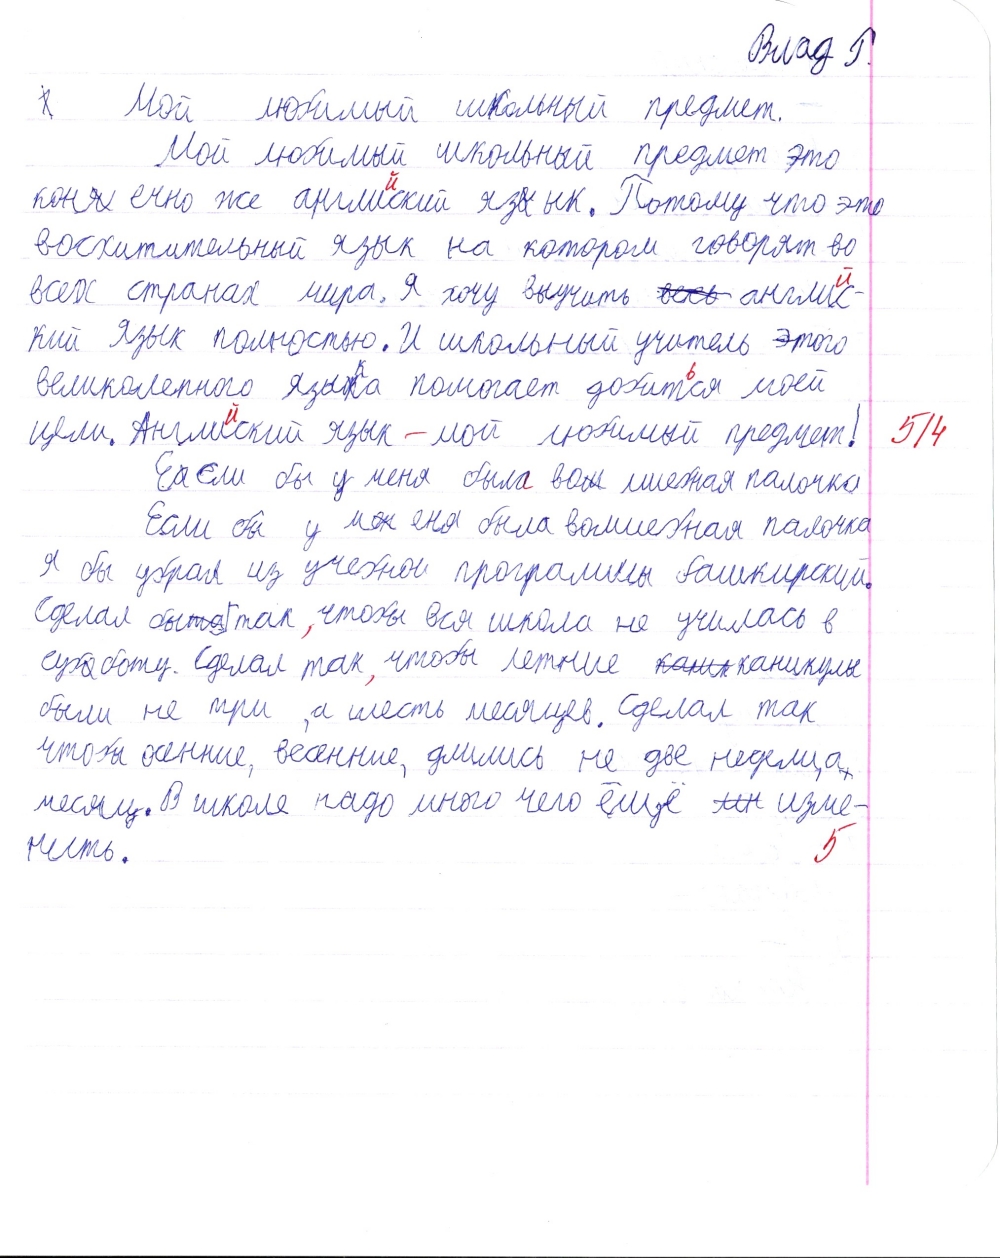 Влад Г.
Мой любимый школьный предмет.
Мой любимый школьный предмет это
конечно же английский язык. Потому что это
восхитительный язык на котором говорят во
всех странах мира. Я хочу выучить весь англий-
кий язык полностью. И школьный учитель этого
великолепного языка помогает добиться моей
цели. Английский язык – мой любимый предмет! 5/4
Если бы у меня была волшебная палочка
Если бы у меня была волшебная палочка
я бы убрал из учебной программы башкирский.
Сделал бы так, чтобы вся школа не училась в
субботу. Сделал так, чтобы летние каникулы
были не три, а шесть месяцев. Сделал так
чтобы осенние, весенние, длились не две недели, а
месяц. В школе надо много чего ещё изме-
нить. 5